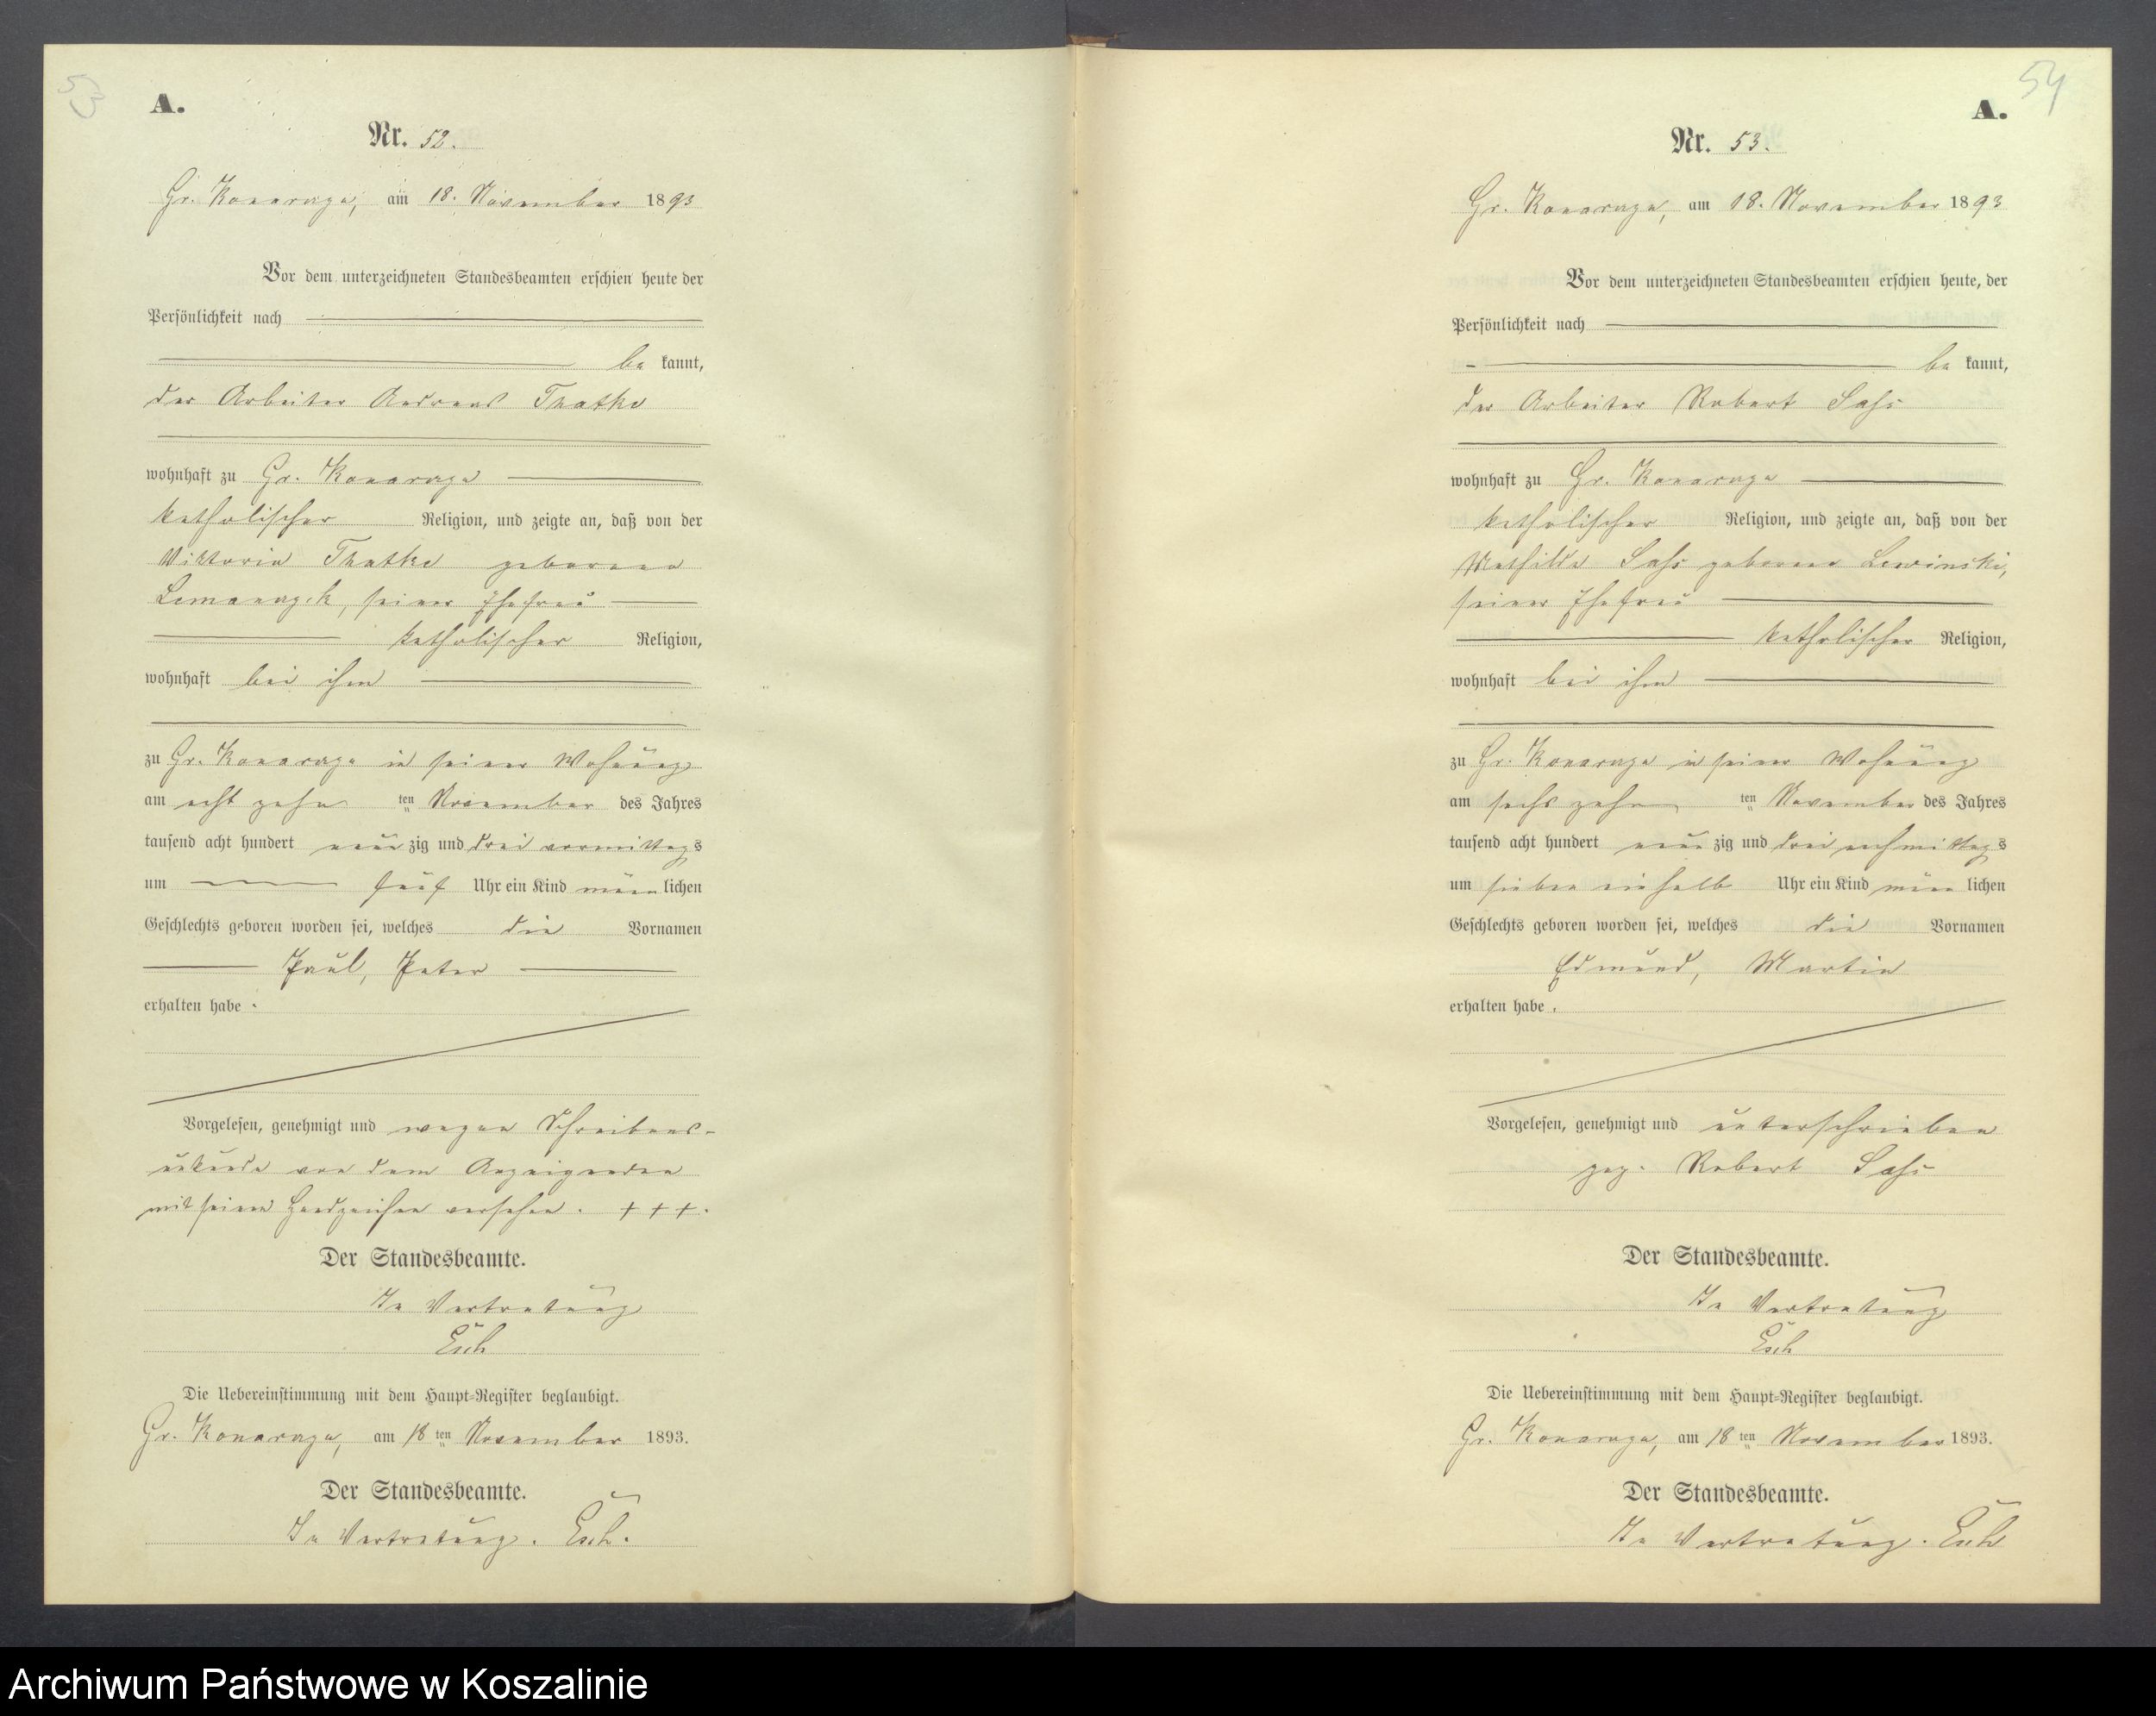 53
A.
Nr. 52.
Gr. Konarczyn, am 18. November 1893
Vor dem unterzeichneten Standesbeamten erschien heute der
Persönlichkeit nach
be kannt,
der Arbeiter Andreas
wohnhaft zu Gr. Konarczyn
katholischer Religion, und zeigte an, daß von der
Viktoria geborenen
seiner Ehefrau
katholischer Religion,
wohnhaft bei ihm
zu Gr. Konarczyn in seiner Wohnung
am acht zehn ten November des Jahres
tausend acht hundert neun zig und drei vormittags
um fünf Uhr ein Kind männ lichen
Geschlechts geboren worden sei, welches die Vornamen
Paul, Peter
erhalten habe.
Vorgelesen, genehmigt und wegen Schreibens-
unkunde von dem Anzeigenden
mit seinem Handzeichen versehen. +++.
Der Standesbeamte.
In Vertretung
Esch
Die Uebereinstimmung mit dem Haupt-Register beglaubigt.
Gr. Konarczyn, am 18 ten November 1893.
Der Standesbeamte.
In Vertretung. Esch.
54
A.
Nr. 53.
Gr. Konarczyn, am 18. November 1893
Vor dem unterzeichneten Standesbeamten erschien heute, der
Persönlichkeit nach
be kannt,
der Arbeiter Robert Sass
wohnhaft zu Gr. Konarczyn
katholischer Religion, und zeigte an, daß von der
Mathilde Sass geborene Lewinski,
seiner Ehefrau
katholischer Religion,
wohnhaft bei ihm
zu Gr. Konarczyn in seiner Wohnung
am sechs zehn ten November des Jahres
tausend acht hundert neun zig und drei nachmittags
um sieben ein halb Uhr ein Kind männ lichen
Geschlechts geboren worden sei, welches die Vornamen
Edmund, Martin
erhalten habe.
Vorgelesen, genehmigt und unterschrieben
gez. Robert Sass
Der Standesbeamte.
In Vertretung
Esch
Die Uebereinstimmung mit dem Haupt-Register beglaubigt.
Gr. Konarczyn, am 18 ten November 1893.
Der Standesbeamte.
In Vertretung. Esch
Archiwum Państwowe w Koszalinie